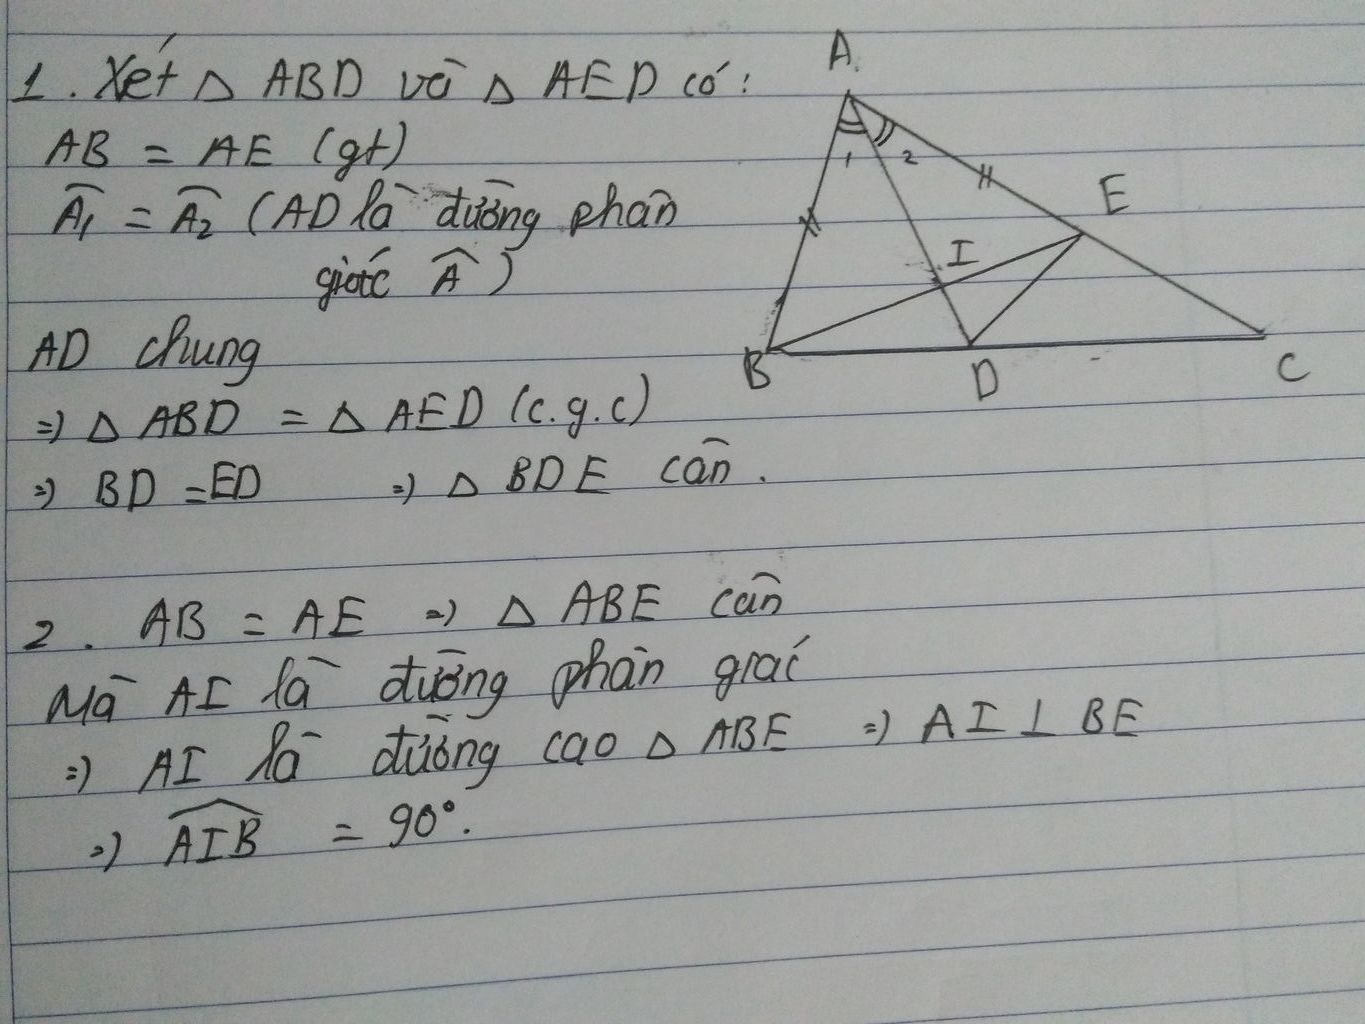 1. Xét △ ABD và △ AED có:
AB = AE (gt)
Â₁ = Â₂ (AD là đường phân
giác Â)
AD chung
=> △ ABD = △ AED (c.g.c)
=> BD = ED => △ BDE cân.
2. AB = AE => △ ABE cân
Mà AI là đường phân giác
=> AI là đường cao △ ABE => AI ⊥ BE
=> \widehat{AIB} = 90°.
A
1 2
E
I
B
D
C